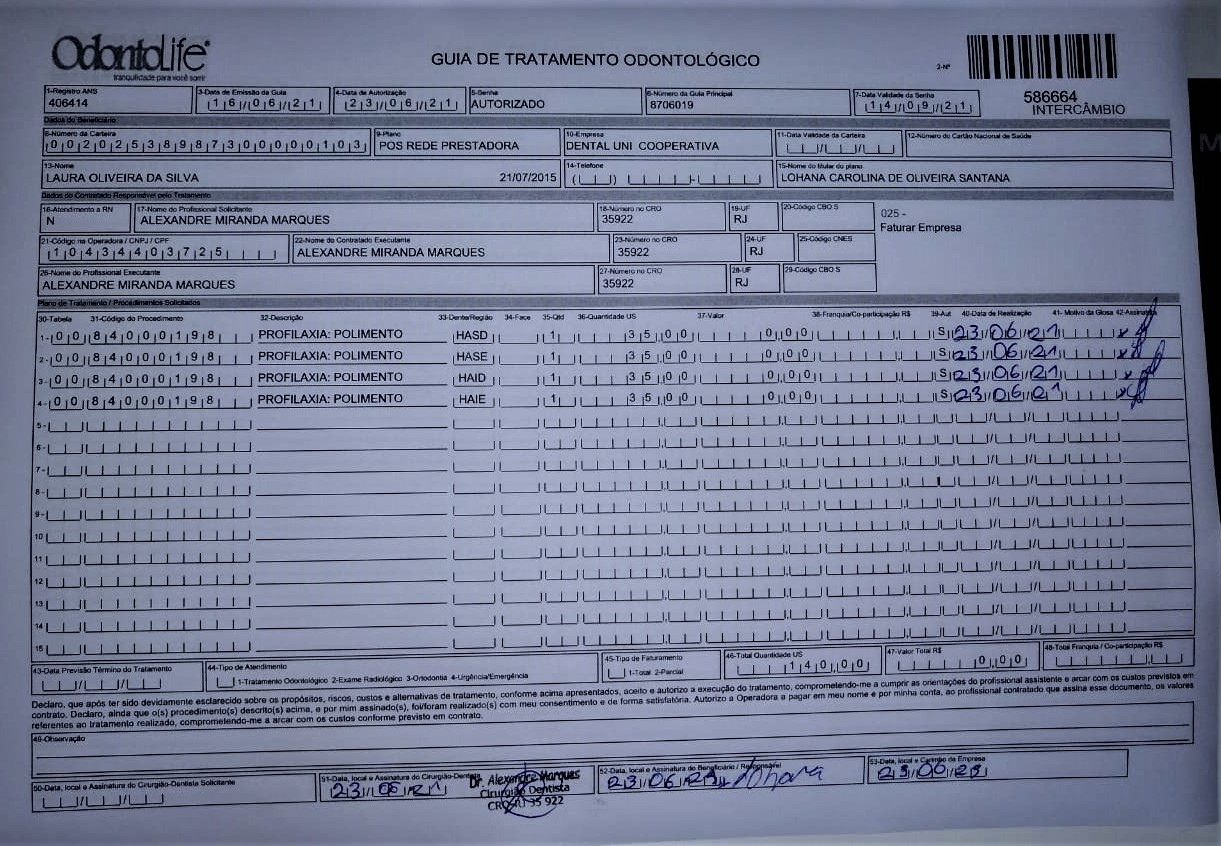 OdontoLife
tranquilidade para você sorrir
GUIA DE TRATAMENTO ODONTOLÓGICO
2-Nº
586664
INTERCÂMBIO
1-Registro ANS 3-Data de Emissão da Guia 4-Data de Autorização 5-Senha 6-Número da Guia Principal 7-Data Validade da Senha
406414 16/06/21 23/06/21 AUTORIZADO 8706019 14/09/21
Dados do Beneficiário
8-Número da Carteira 9-Plano 10-Empresa 11-Data Validade da Carteira 12-Número do Cartão Nacional de Saúde
00202538987300000103 POS REDE PRESTADORA DENTAL UNI COOPERATIVA
13-Nome 14-Telefone 15-Nome do titular do plano
LAURA OLIVEIRA DA SILVA 21/07/2015 LOHANA CAROLINA DE OLIVEIRA SANTANA
Dados do Contratado Responsável pelo Tratamento
16-Atendimento a RN 17-Nome do Profissional Solicitante 18-Número no CRO 19-UF 20-Código CBO S
N ALEXANDRE MIRANDA MARQUES 35922 RJ
025 -
Faturar Empresa
21-Código na Operadora / CNPJ / CPF 22-Nome do Contratado Executante 23-Número no CRO 24-UF 25-Código CNES
10434403725 ALEXANDRE MIRANDA MARQUES 35922 RJ
26-Nome do Profissional Executante 27-Número no CRO 28-UF 29-Código CBO S
ALEXANDRE MIRANDA MARQUES 35922 RJ
Plano de Tratamento / Procedimentos Solicitados
30-Tabela 31-Código do Procedimento 32-Descrição 33-Dente/Região 34-Face 35-Qtd 36-Quantidade US 37-Valor 38-Franquia/Co-participação R$ 39-Aut 40-Data de Realização 41- Motivo da Glosa 42-Assinatura
1- 00 84000198 PROFILAXIA: POLIMENTO HASD 1 35,00 0,00 S 23/06/21 x
2- 00 84000198 PROFILAXIA: POLIMENTO HASE 1 35,00 0,00 S 23/06/21 x
3- 00 84000198 PROFILAXIA: POLIMENTO HAID 1 35,00 0,00 S 23/06/21 x
4- 00 84000198 PROFILAXIA: POLIMENTO HAIE 1 35,00 0,00 S 23/06/21 x
5-
6-
7-
8-
9-
10
11
12
13
14
15
43-Data Previsão Término do Tratamento 44-Tipo de Atendimento 45-Tipo de Faturamento 46-Total Quantidade US 47-Valor Total R$ 48-Total Franquia / Co-participação R$
1-Tratamento Odontológico 2-Exame Radiológico 3-Ortodontia 4-Urgência/Emergência 1-Total 2-Parcial 140,00 0,00
Declaro, que após ter sido devidamente esclarecido sobre os propósitos, riscos, custos e alternativas de tratamento, conforme acima apresentados, aceito e autorizo a execução do tratamento, comprometendo-me a cumprir as orientações do profissional assistente e arcar com os custos previstos em
contrato. Declaro, ainda que o(s) procedimento(s) descrito(s) acima, e por mim assinado(s), foi/foram realizado(s) com meu consentimento e de forma satisfatória. Autorizo a Operadora a pagar em meu nome e por minha conta, ao profissional contratado que assina esse documento, os valores
referentes ao tratamento realizado, comprometendo-me a arcar com os custos conforme previsto em contrato.
49-Observação
50-Data, local e Assinatura do Cirurgião-Dentista Solicitante 51-Data, local e Assinatura do Cirurgião-Dentista 52-Data, local e Assinatura do Beneficiário / Responsável 53-Data, local e Carimbo da Empresa
23/06/21 23/06/21 Lohana 23/06/21
Dr. Alexandre Marques
Cirurgião Dentista
CRO-RJ 35 922